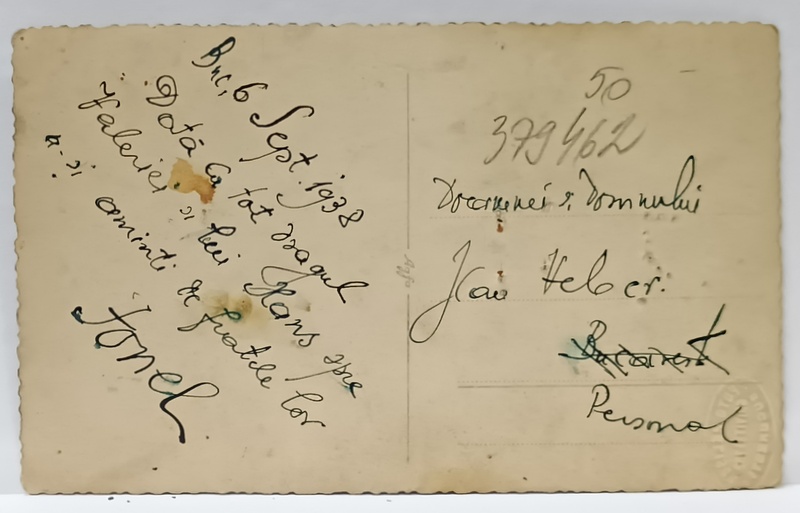 Buc, 6 Sept. 1938
Dată cu tot dragul
Valeriei și lui Hans spre
a-și aminti de fratele lor
Ionel
50
379462
Doamnei și Domnului
Jean Veber.
București
Personal